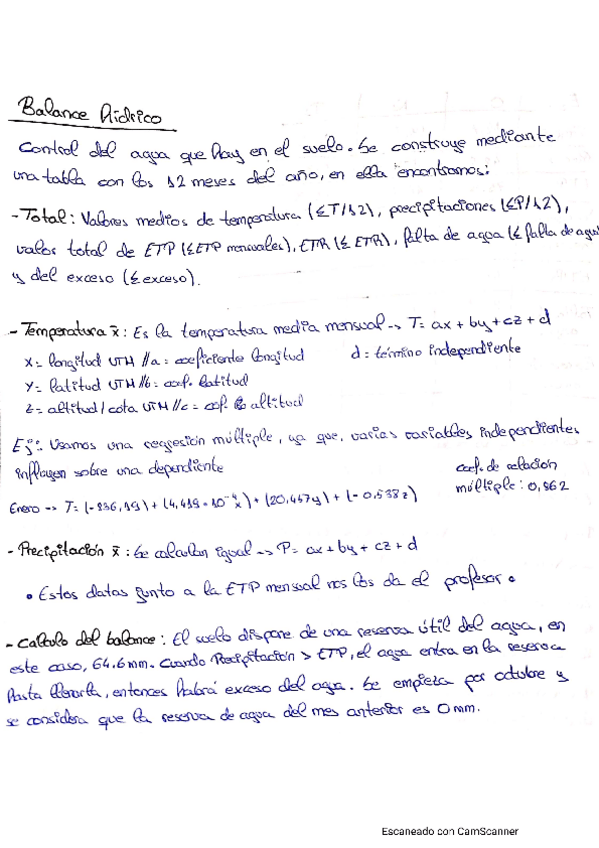 Balance hídrico
Control del agua que hay en el suelo. Se construye mediante
una tabla con los 12 meses del año, en ella encontramos:
- Total: Valores medios de temperatura (ΣT/12), precipitaciones (ΣP/12),
valor total de ETP (ΣETP mensuales), ETR (Σ ETR), falta de agua (Σ falta de agua)
y del exceso (Σ exceso).
- Temperatura x̄: Es la temperatura media mensual -> T= ax + by + cz + d
x= longitud UTM // a= coeficientes longitud d= término independiente
y= latitud UTM // b= coef. latitud
z= altitud / cota UTM // c= coef. altitud
Ej: Usamos una regresión múltiple, ya que, varias variables independientes
influyen sobre una dependiente
coef. de relación
múltiple: 0,862
Enero -> T= (-236,19) + (4,419·10⁻⁴x) + (20,457y) + (-0,538z)
- Precipitación x̄: Se calculan igual -> P= ax + by + cz + d
• Estos datos junto a la ETP mensual nos los da el profesor •
- Calculo del balance: El suelo dispone de una reserva útil del agua, en
este caso, 64.6mm. Cuando Precipitación > ETP, el agua entra en la reserva
hasta llenarla, entonces habrá exceso del agua. Se empieza por octubre y
se considera que la reserva de agua del mes anterior es 0mm.
Escaneado con CamScanner